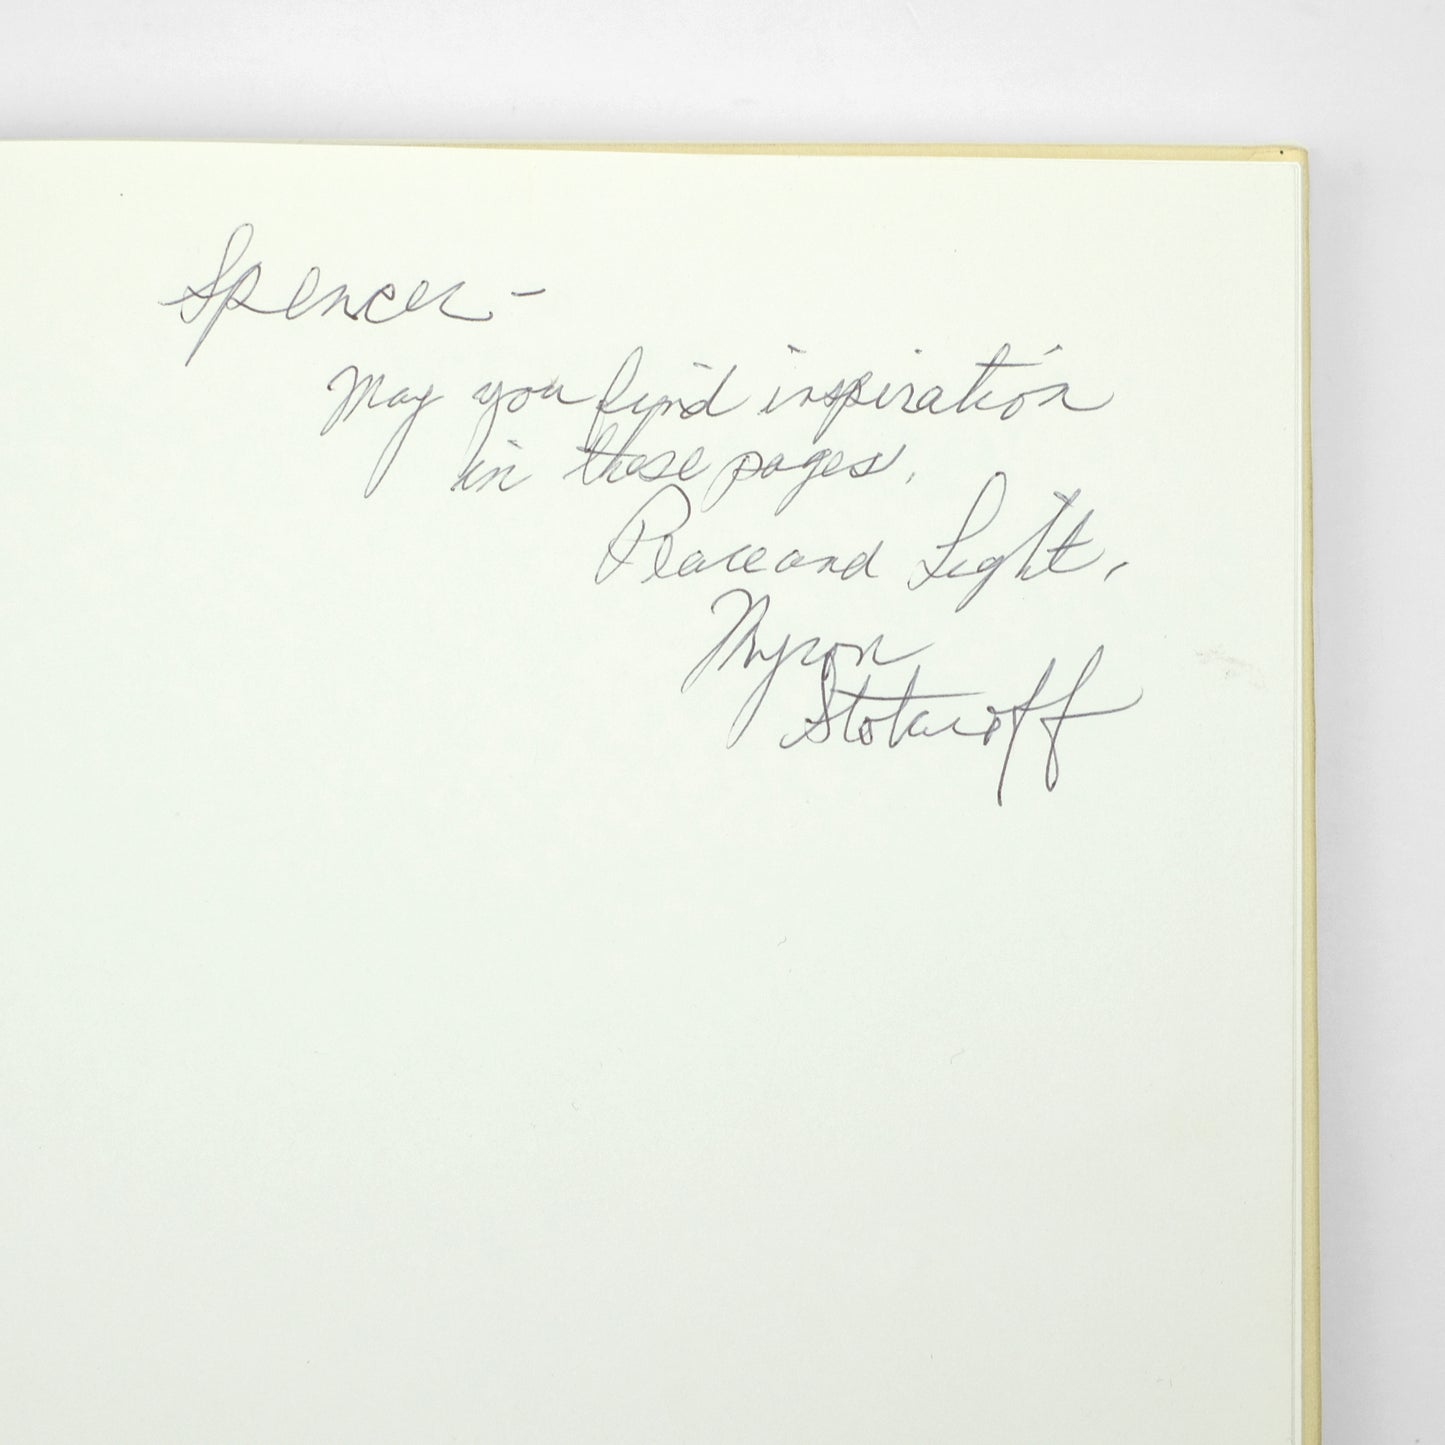 Spencer -
May you find inspiration
in these pages.
Peace and Light,
Myron
Stolaroff